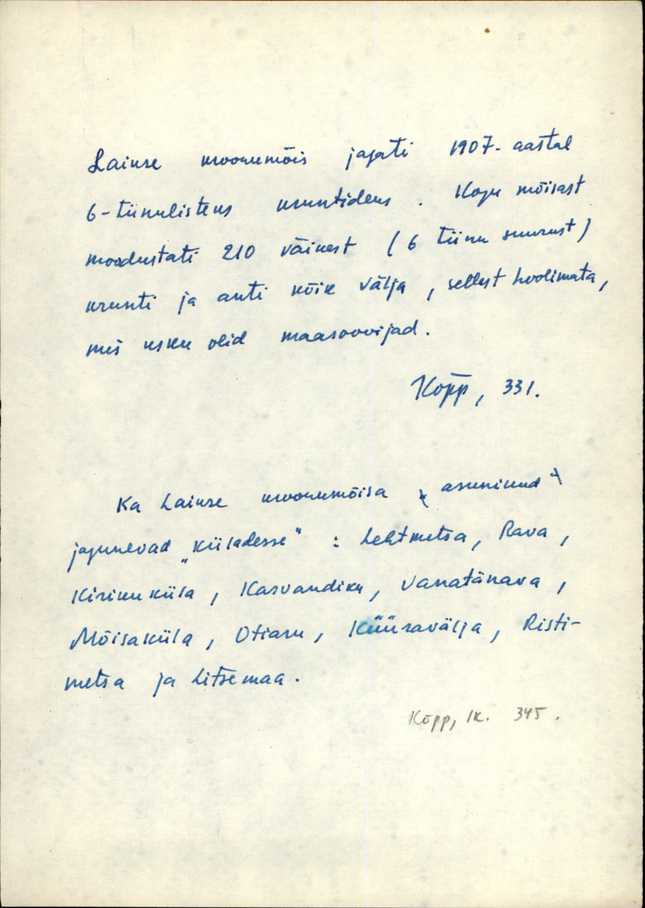 Laiuse kroonumõis jagati 1907. aastal
6-tiinulisteks kruntideks. Kogu mõisast
moodustati 210 väikest (6 tiinu suurust)
krunti ja anti kõik välja, sellest hoolimata,
mis usku olid maasoovijad.
Kõpp, 331.
Ka Laiuse kroonumõisa asunikud
jagunevad „küladesse" : Lehtmetsa, Rava,
Kirikuküla, Kasvandiku, Vanatänava,
Mõisaküla, Otiaru, Küüravälja, Risti-
metsa ja Litsemaa.
Kõpp, lk. 345.